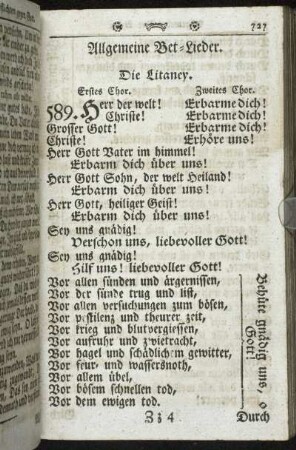 727
Allgemeine Bet-Lieder.
Die Litaney.
Erstes Chor. Zweites Chor.
589. Herr der welt! Erbarme dich!
Christe! Erbarme dich!
Grosser Gott! Erbarme dich!
Christe! Erhöre uns!
Herr Gott Vater im himmel!
Erbarm dich über uns!
Herr Gott Sohn, der welt Heiland!
Erbarm dich über uns!
Herr Gott, heiliger Geist!
Erbarm dich über uns!
Sey uns gnädig!
Verschon uns, liebevoller Gott!
Sey uns gnädig!
Hilf uns! liebevoller Gott!
Vor allen sünden und ärgernissen,
Vor der sünde trug und list,
Vor allen versuchungen zum bösen,
Vor pestilenz und theurer zeit,
Vor krieg und blutvergiessen,
Vor aufruhr und zwietracht,
Vor hagel und schädlichem gewitter,
Vor feur- und wassersnoth,
Vor allem übel,
Vor bösem schnellen tod,
Vor dem ewigen tod.
Behüte gnädig uns, o
Gott!
Zz 4 Durch